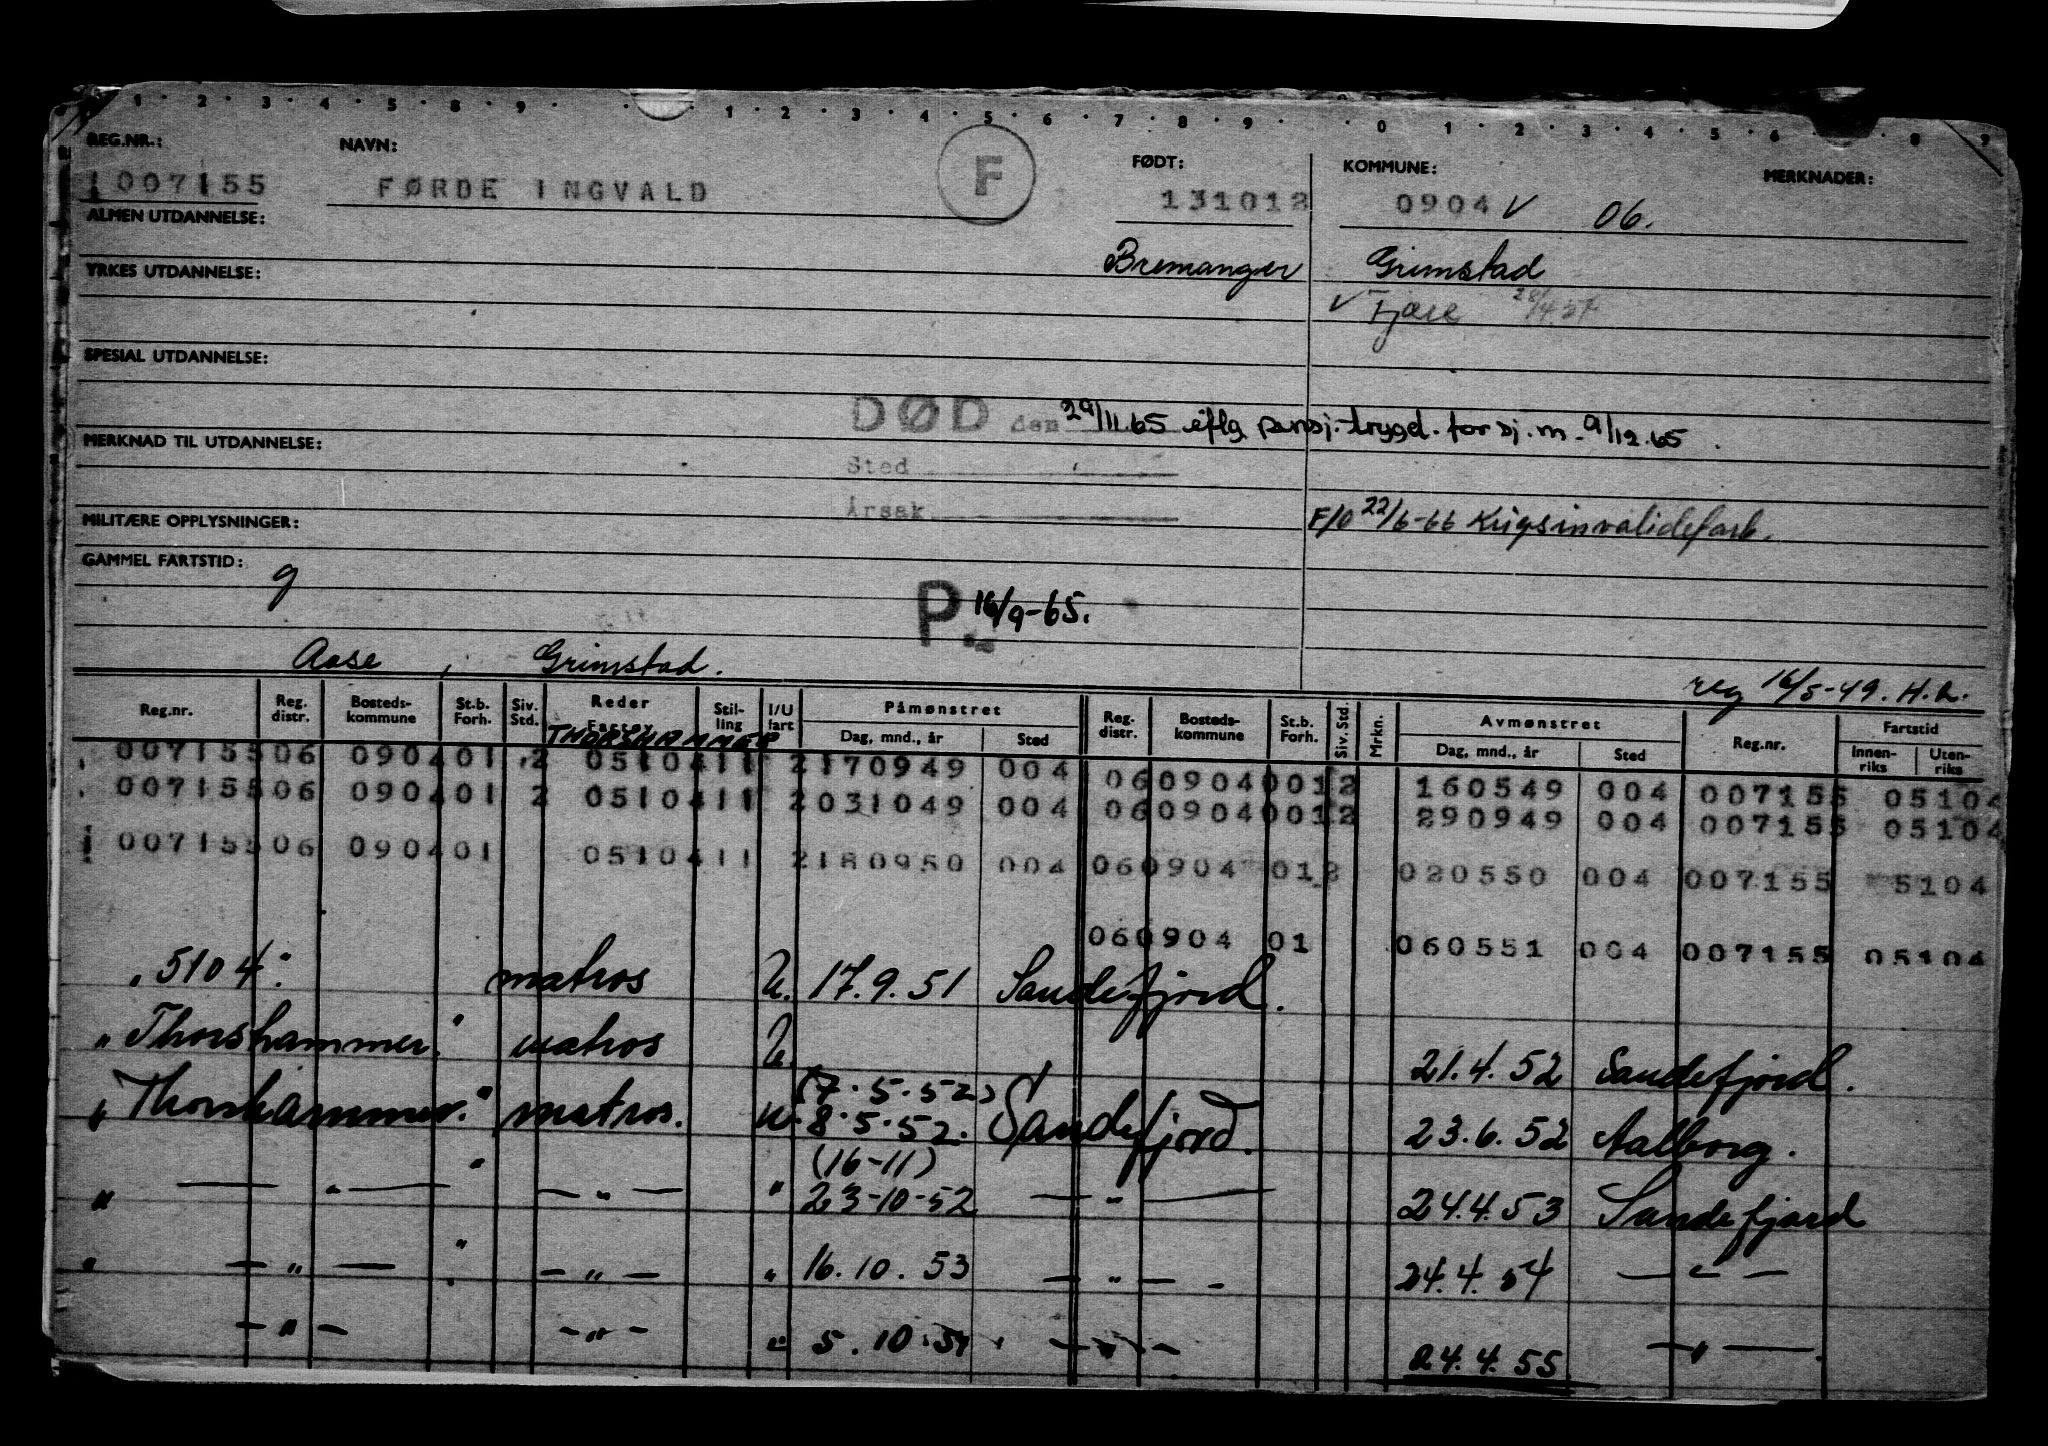 1 2 3 4 5 8 9 1 2 3 4 5 6 7 8 9 0 1 2 3 4 5 6 8 9
REG.NR.: NAVN: FØDT: KOMMUNE: MERKNADER:
007155 FØRDE INGVALD F 131012 0904 V 06.
ALMEN UTDANNELSE:
Bremanger Grimstad
YRKES UTDANNELSE:
V Fjære
SPESIAL UTDANNELSE:
DØD den 29/11.65 iflg pensj.-trygd. for sj.m. 9/12.65.
MERKNAD TIL UTDANNELSE:
Sted
Årsak
MILITÆRE OPPLYSNINGER:
F/O 22/6-66 Krigsinvalidefark.
GAMMEL FARTSTID:
9
P. 16/9-65.
Aase, Grimstad.
reg 16/5-49. H.L.
Reg.nr. Reg. distr. Bosteds-kommune St.b. Forh. Siv. Std. Reder Fartøy Stil-ling I/U fart Påmønstret Dag, mnd., år Sted Reg. distr. Bosteds-kommune St.b. Forh. Siv. Std. Mrkn. Avmønstret Dag, mnd., år Sted Reg.nr. Fartstid Innen-riks Uten-riks
THORSHAMMER
007155 06 0904 01 2 0510411 2 170949 004 06 0904 001 2 160549 004 007155 05104
007155 06 0904 01 2 0510411 2 031049 004 06 0904 001 2 290949 004 007155 05104
007155 06 0904 01 0510411 2 180950 004 06 0904 01 2 020550 004 007155 5104
06 0904 01 060551 004 007155 05104
"5104" matros U. 17.9.51 Sandefjord.
"Thorshammer" matros U 21.4.52 Sandefjord.
(7.5.52)
"Thorshammer." matros. u. 8.5.52. Sandefjord. 23.6.52 Aalborg.
(16-11)
" — " — " — " — " 23-10-52 — " — 24.4.53 Sandefjord
" — " — " — " — " 16.10.53 — " — 24.4.54 — " —
— " — — " — " 5.10.54 — " — 24.4.55 — " —